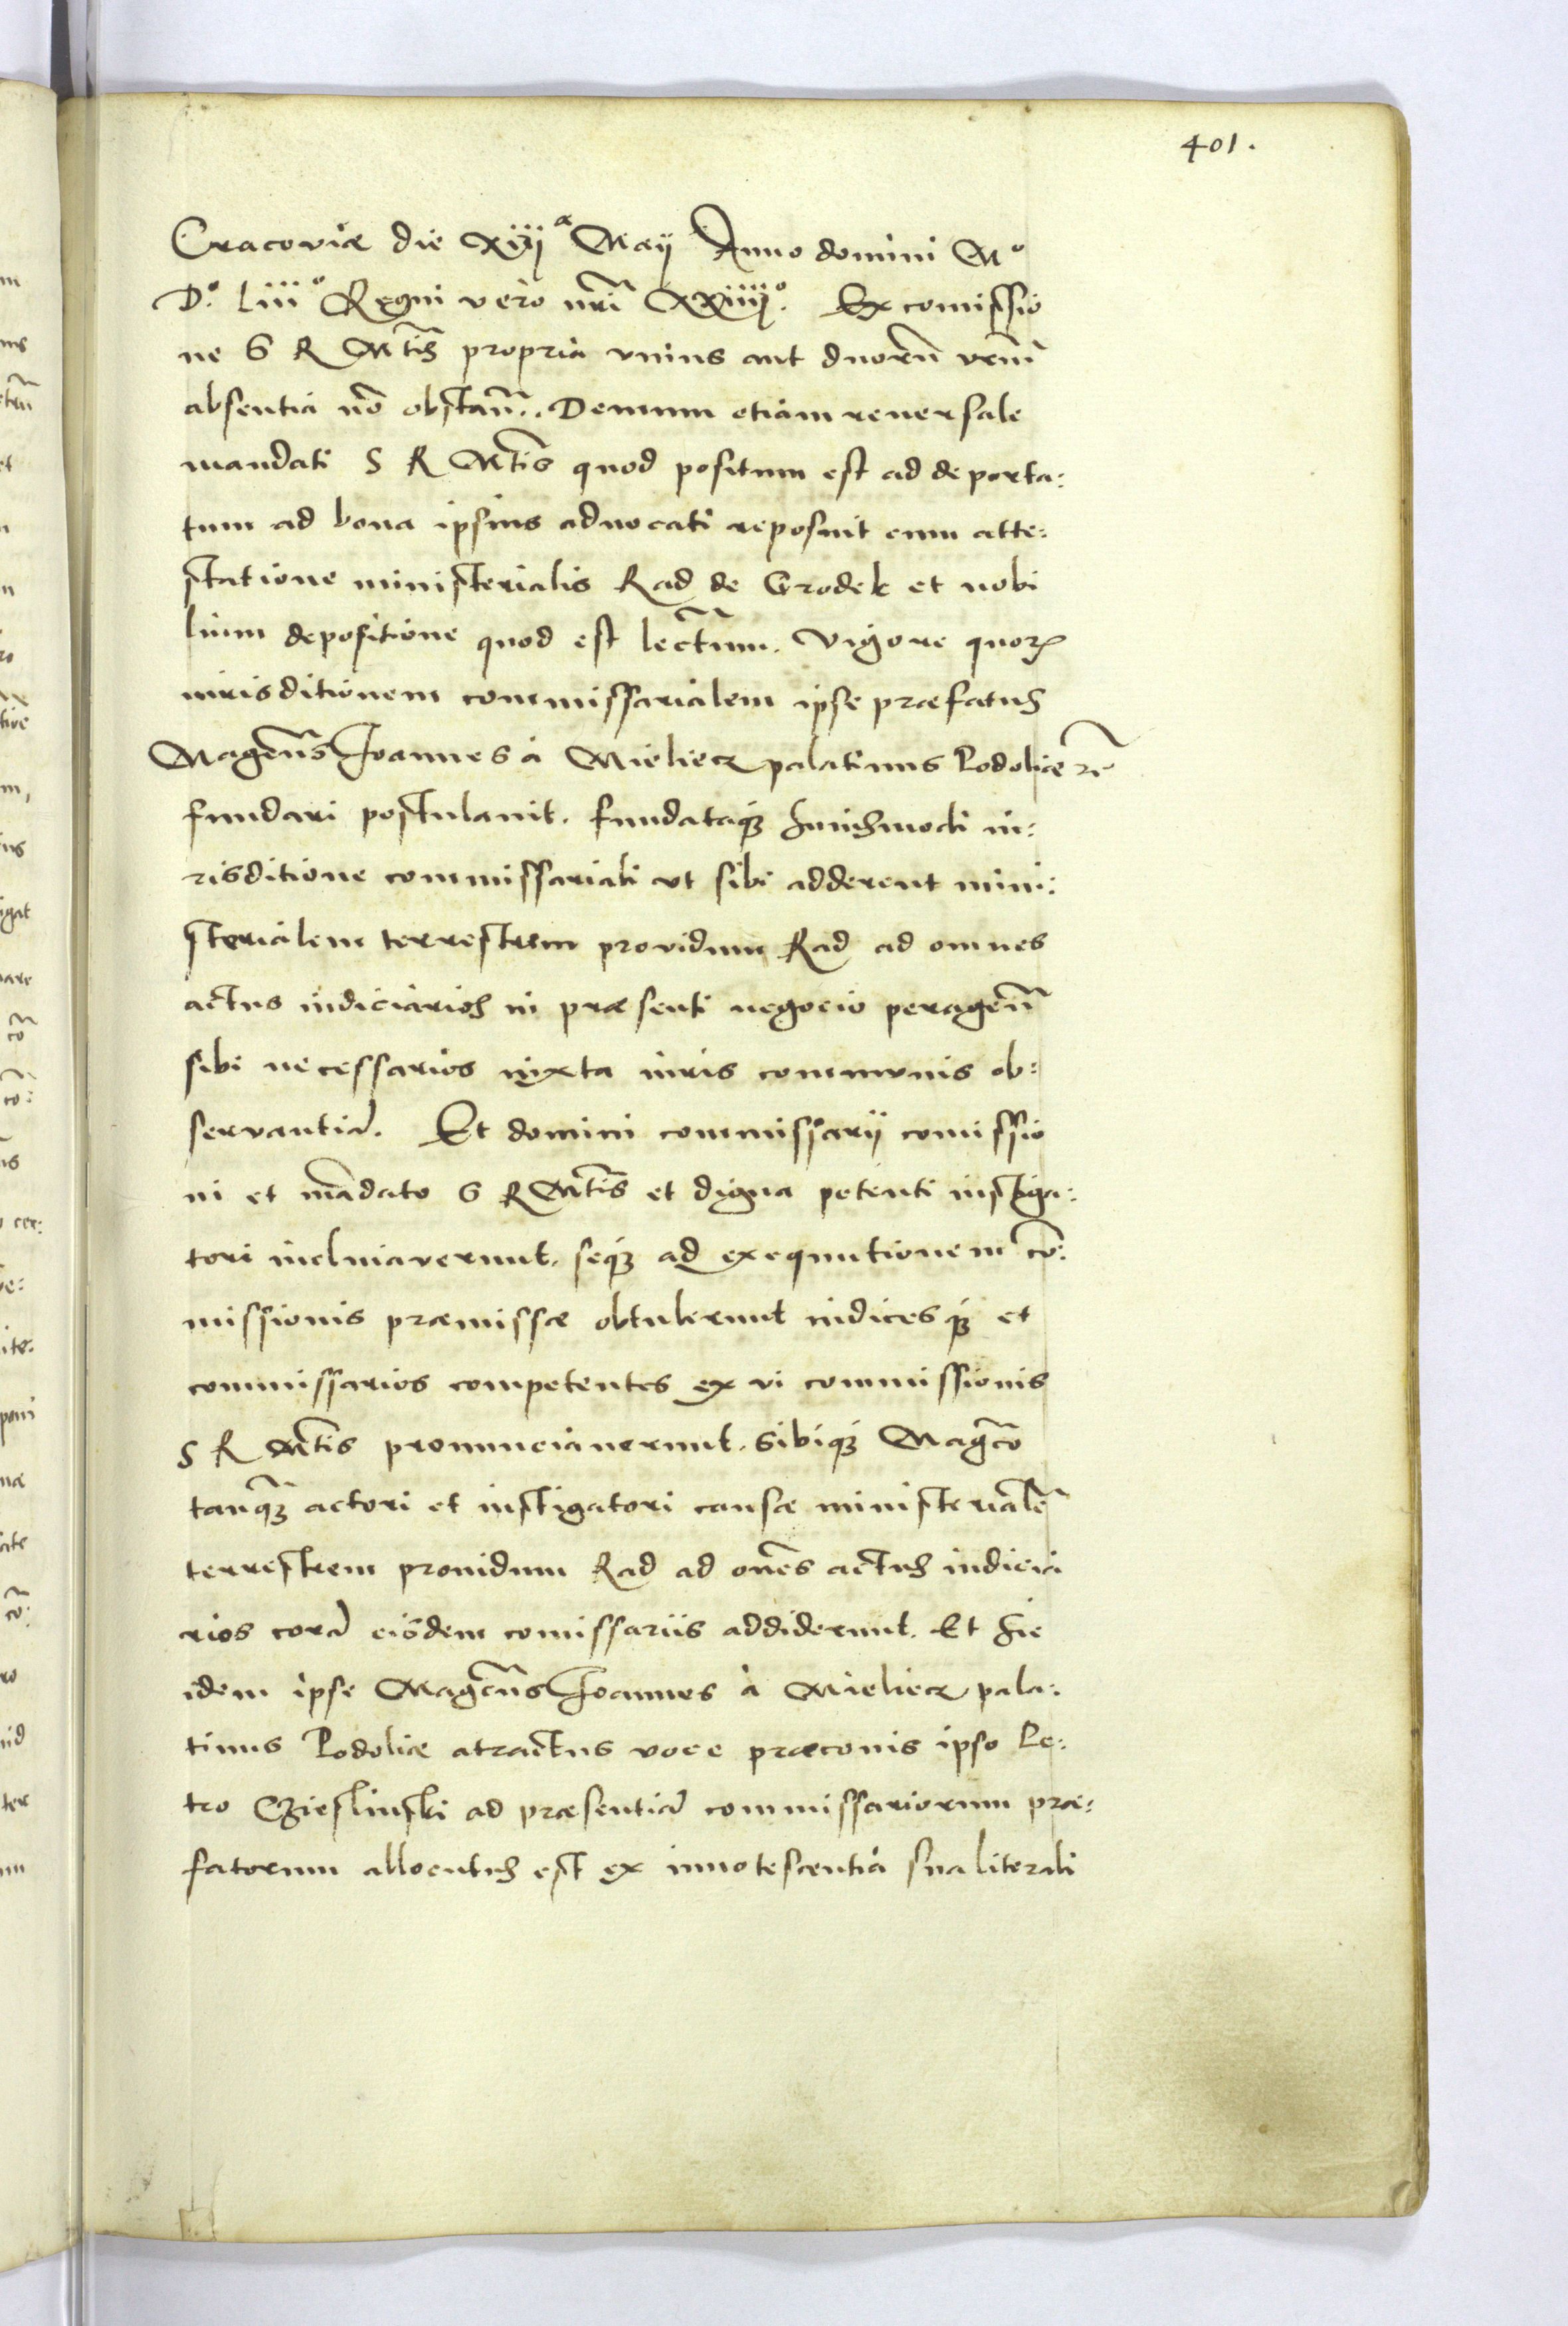 401.
Cracoviæ die xiiij a Maij Anno domini Mo
Do. liiio Regni vero nrĩ xxiiiio. Ex comissio
ne S R Mtis propria vnius aut duorũ vrm̃
absentia nõ obstañ.. Demum etiam reuersale
mandati S R Mtis quod positum est ad deporta:
tum ad bona ipsius aduocati reposuit cum atte:
statione ministerialis Rad de Grodek et nobi
lium depositione quod est lectum. Vigore quorꝝ
iurisditionem commissarialem ipse præfatus
Magcũs Joannes à Mieliecz palatinus Podoliæ re
fundari postulauit. fundataqꝫ huiusmodi iu:
risditione commissariali vt sibi adderent mini:
sterialem terrestrem providum Rad ad omnes
actus iudiciarios in præsenti negocio perageñ
sibi necessarios iuxta iuris communis ob:
servantiã. Et domini commissarij comissio
ni et mãdato S R Mtis et digna petenti instiga:
tori inclniaverunt, seqꝫ ad exequutionem cõ:
missionis præmissæ obtulerunt iudicesqꝫ et
commissarios competentes ex vi commissionis
S R Mtis pronunciauerunt. Sibiqꝫ Magcõ
tanqꝫ actori et instigatori causæ ministerialẽ
terrestrem prouidum Rad ad oñes actus iudicia
rios corã eisdem comissariis addiderunt. Et hic
idem ipse Magcũs Joannes à Mieliecz pala:
tinus Podoliæ atractus voce præconis ipso Pe:
tro Czieslinski ad præsentiã commissariorum præ:
fatorum allocutus est ex innotescentia sua literali